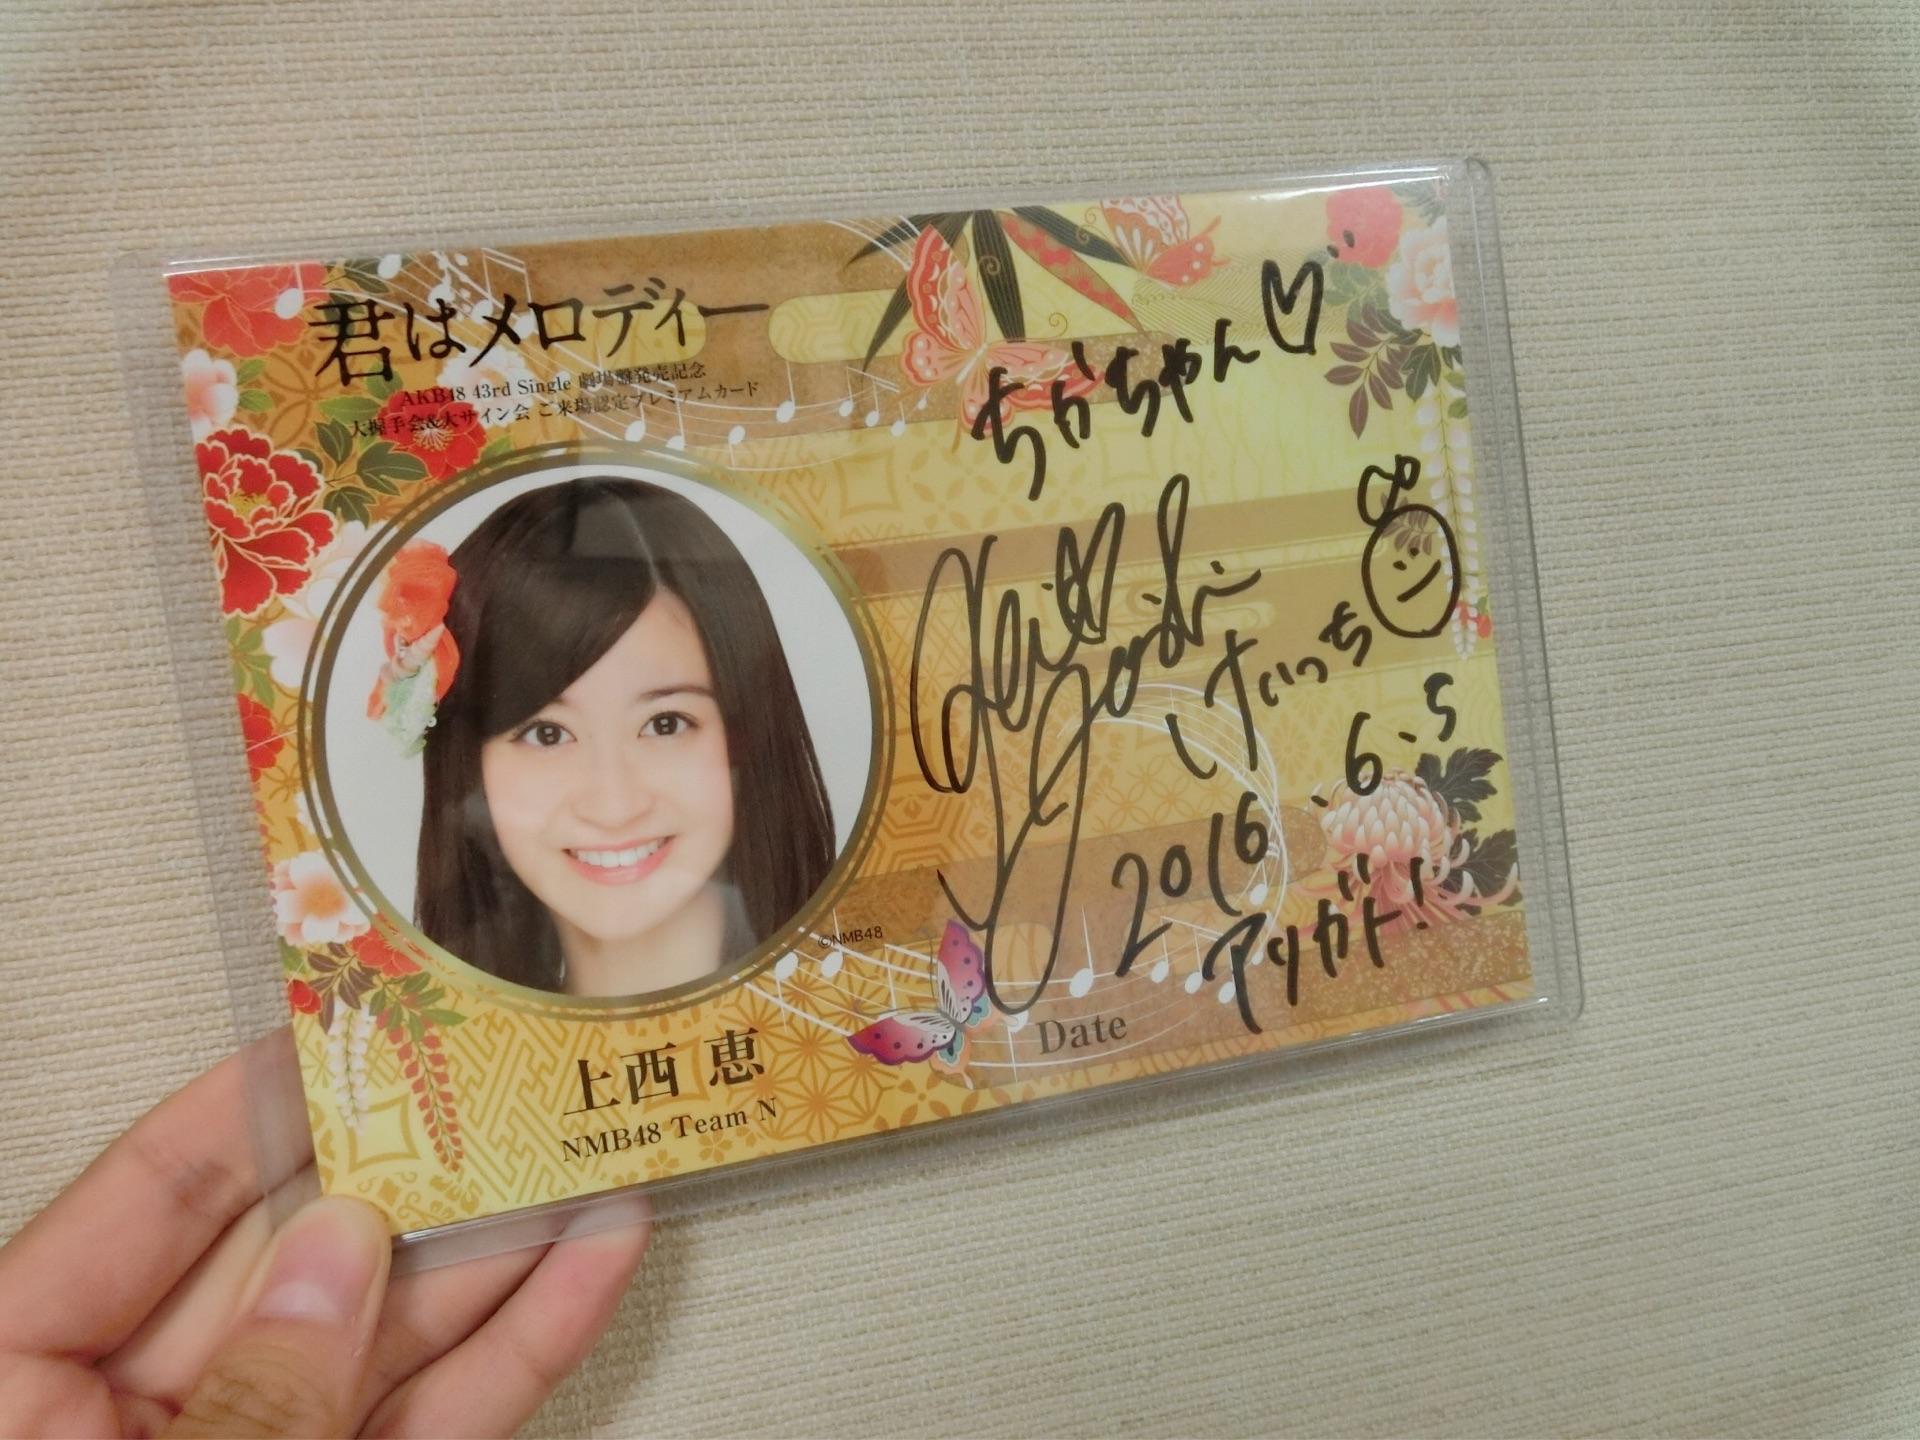 君はメロディー
AKB48 43rd Single 劇場盤発売記念
大握手会&大サイン会 ご来場認定プレミアムカード
ちかちゃん♡
けいっち
2016.6.5
アリガト!
©NMB48
Date
上西 恵
NMB48 Team N